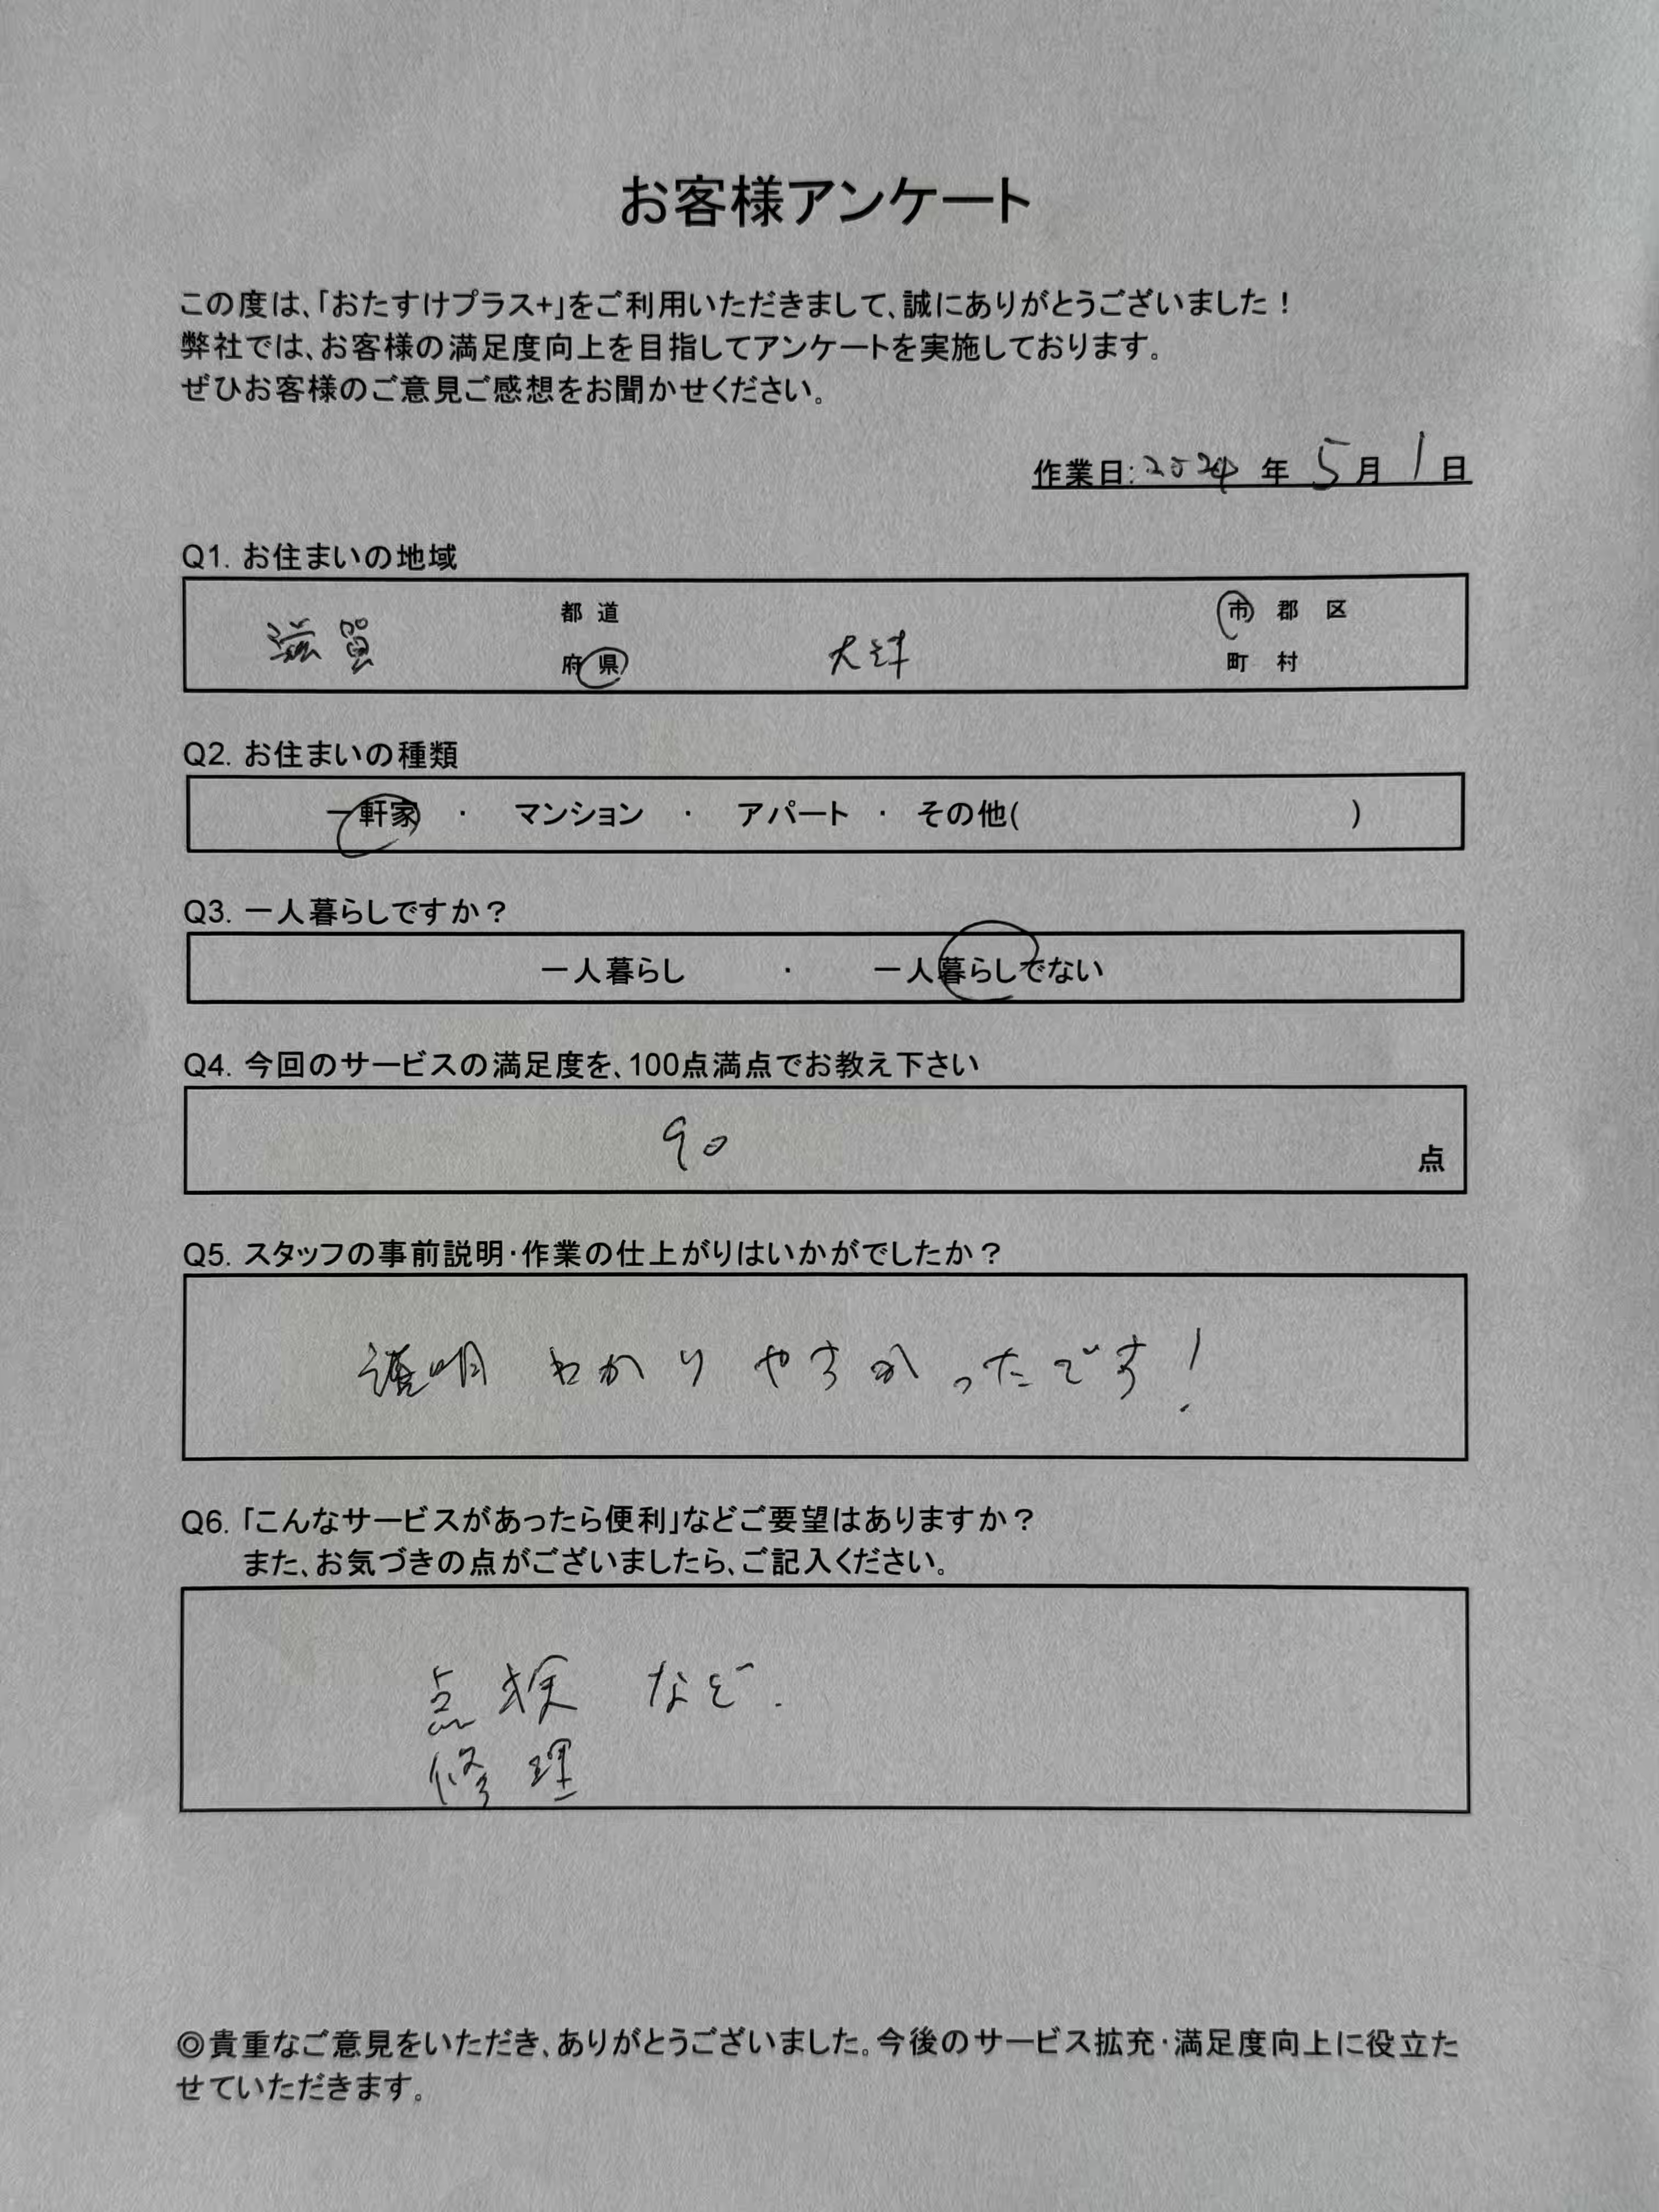 お客様アンケート
この度は、「おたすけプラス+」をご利用いただきまして、誠にありがとうございました！
弊社では、お客様の満足度向上を目指してアンケートを実施しております。
ぜひお客様のご意見ご感想をお聞かせください。
作業日:2024年5月1日
Q1. お住まいの地域
滋賀 都 道 府 県 大津 市 郡 区 町 村
Q2. お住まいの種類
一軒家 ・ マンション ・ アパート ・ その他( )
Q3. 一人暮らしですか？
一人暮らし ・ 一人暮らしでない
Q4. 今回のサービスの満足度を、100点満点でお教え下さい
90 点
Q5. スタッフの事前説明・作業の仕上がりはいかがでしたか？
説明 わかりやすかったです！
Q6. 「こんなサービスがあったら便利」などご要望はありますか？
また、お気づきの点がございましたら、ご記入ください。
点検 など.
修理
◎貴重なご意見をいただき、ありがとうございました。今後のサービス拡充・満足度向上に役立た
せていただきます。